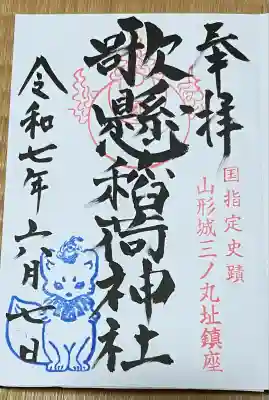 奉拝
国指定史蹟
山形城三ノ丸址鎮座
歌懸稲荷神社
令和七年六月七日